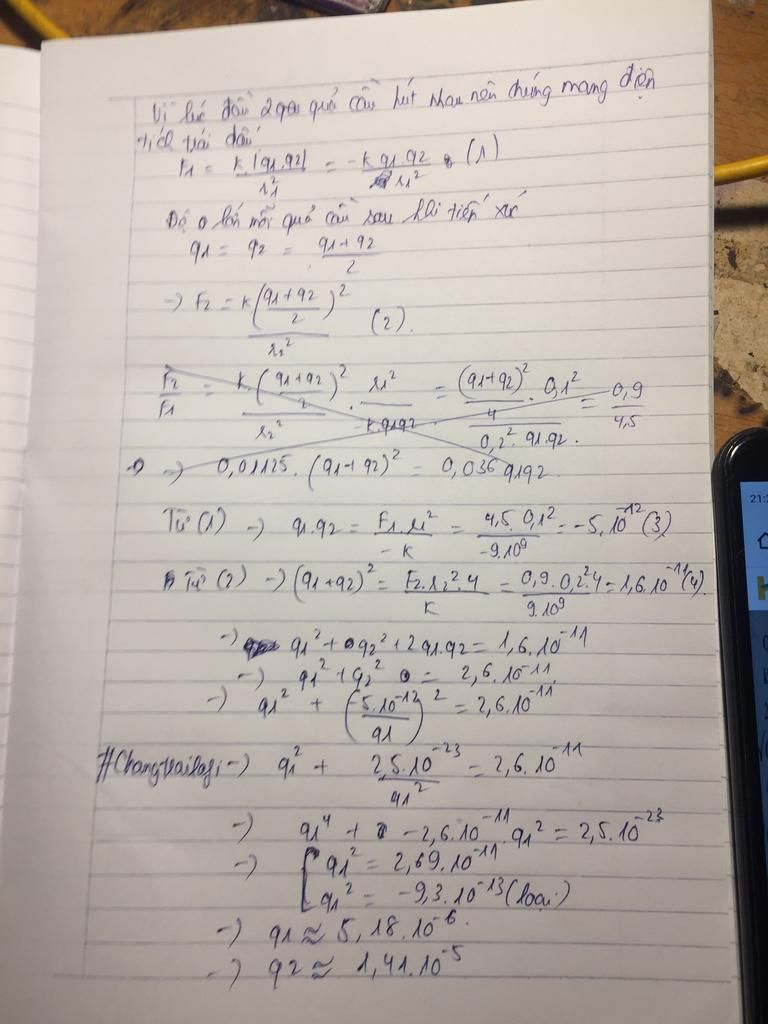 Vì lúc đầu 2 quả cầu hút nhau nên chúng mang điện
tích trái dấu
F1 = k.|q1.q2| / r1² = -k q1.q2 / r1² (1)
Độ lớn mỗi quả cầu sau khi tiếp xúc
q1 = q2 = (q1+q2)/2
→ F2 = k((q1+q2)/2)² / r2² (2).
F2/F1 = k.((q1+q2)/2)² / r2² . r1² / -k.q1q2 = (q1+q2)²/4 . 0,1² / 0,2². q1.q2 = 0,9/4,5
→ 0,01125. (q1+q2)² = 0,036 q1q2
Từ (1) → q1.q2 = F1.r1² / -k = 4,5.0,1² / -9.10⁹ = -5.10⁻¹² (3)
Từ (2) → (q1+q2)² = F2.r2².4 / k = 0,9.0,2².4 / 9.10⁹ = 1,6.10⁻¹¹ (4).
→ q1² + q2² + 2q1.q2 = 1,6.10⁻¹¹
→ q1² + q2² = 2,6.10⁻¹¹
→ q1² + (-5.10⁻¹² / q1)² = 2,6.10⁻¹¹
→ q1² + 2,5.10⁻²³ / q1² = 2,6.10⁻¹¹
→ q1⁴ + -2,6.10⁻¹¹.q1² = 2,5.10⁻²³
→ [ q1² = 2,69.10⁻¹¹
q1² = -9,3.10⁻¹³ (loại)
→ q1 ≈ 5,18.10⁻⁶.
→ q2 ≈ 1,41.10⁻⁵
21:2